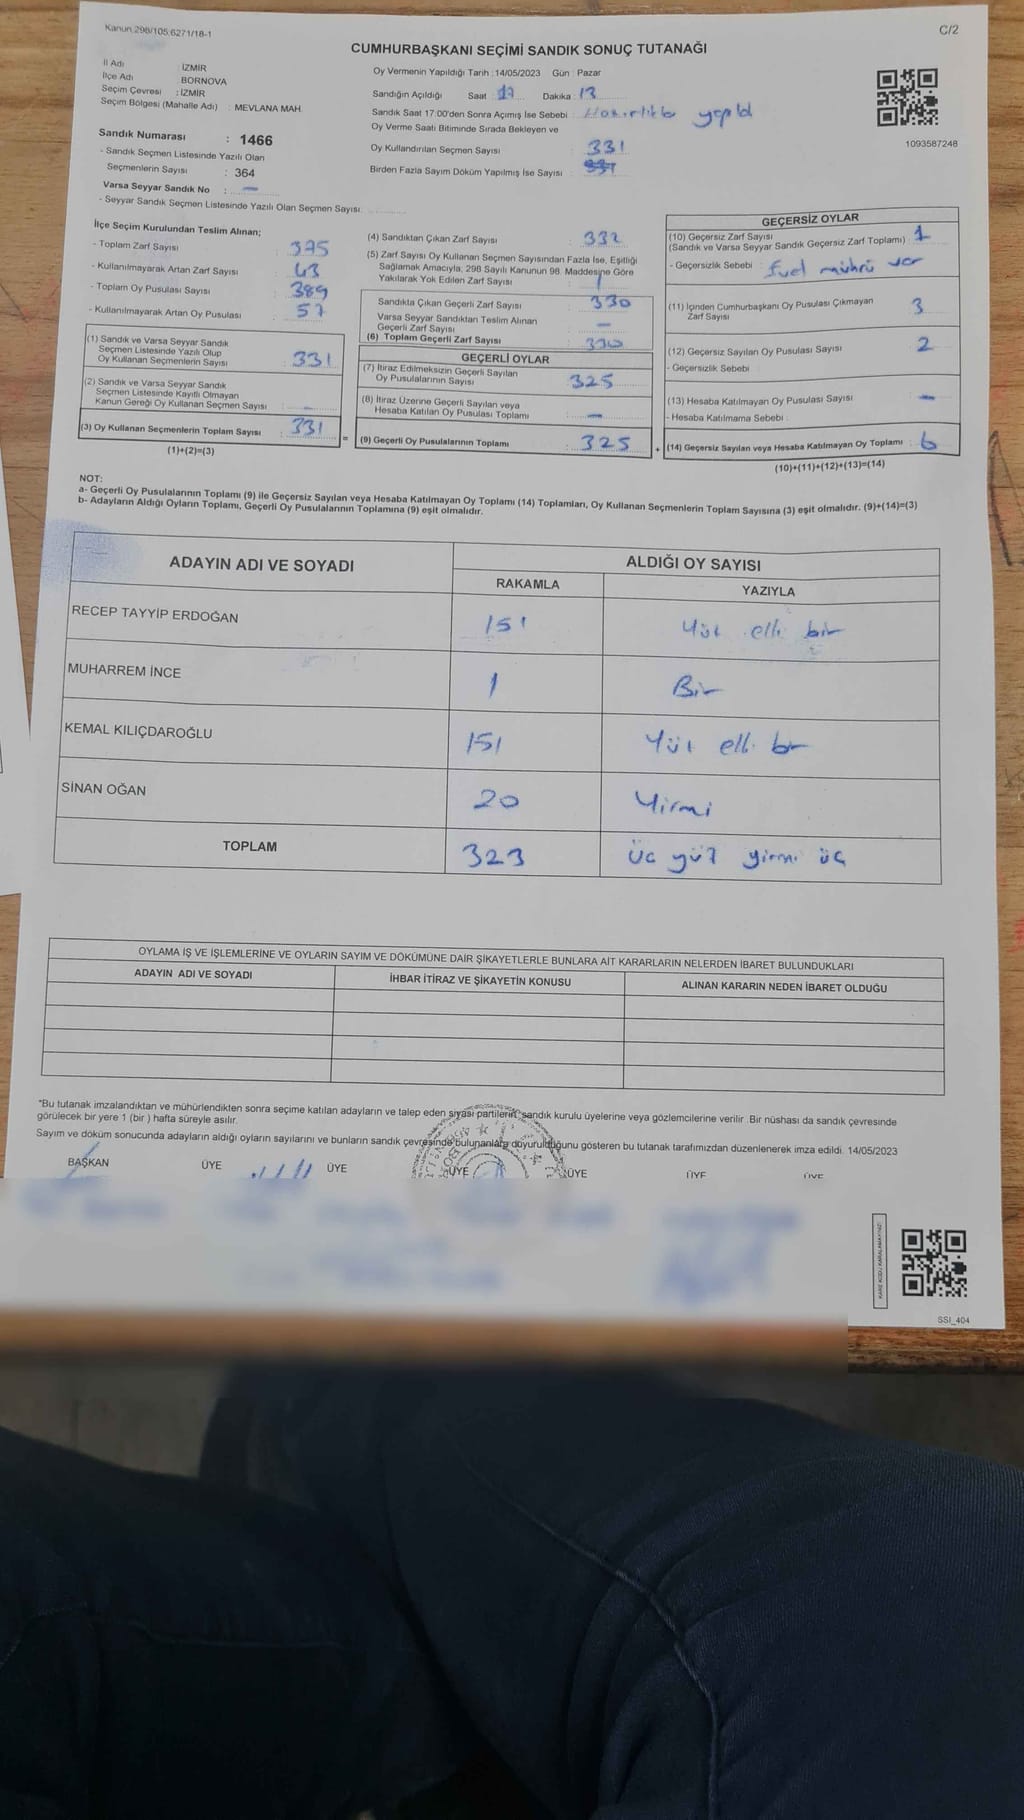 Kanun.298/105.6271/18-1
C/2
CUMHURBAŞKANI SEÇİMİ SANDIK SONUÇ TUTANAĞI
İl Adı : İZMİR
İlçe Adı : BORNOVA
Seçim Çevresi : İZMİR
Seçim Bölgesi (Mahalle Adı) : MEVLANA MAH.
Oy Vermenin Yapıldığı Tarih :14/05/2023 Gün : Pazar
Sandığın Açıldığı Saat : 17 Dakika : 13
Sandık Saat 17:00'den Sonra Açımış İse Sebebi :
Oy Verme Saati Bitiminde Sırada Bekleyen ve
Oy Kullandırılan Seçmen Sayısı : 331
Birden Fazla Sayım Döküm Yapılmış İse Sayısı :
1093587248
Sandık Numarası : 1466
- Sandık Seçmen Listesinde Yazılı Olan
Seçmenlerin Sayısı : 364
Varsa Seyyar Sandık No : —
- Seyyar Sandık Seçmen Listesinde Yazılı Olan Seçmen Sayısı:
İlçe Seçim Kurulundan Teslim Alınan;
- Toplam Zarf Sayısı : 375
- Kullanılmayarak Artan Zarf Sayısı : 43
- Toplam Oy Pusulası Sayısı : 389
- Kullanılmayarak Artan Oy Pusulası : 57
(1) Sandık ve Varsa Seyyar Sandık
Seçmen Listesinde Yazılı Olup
Oy Kullanan Seçmenlerin Sayısı : 331
(2) Sandık ve Varsa Seyyar Sandık
Seçmen Listesinde Kayıtlı Olmayan
Kanun Gereği Oy Kullanan Seçmen Sayısı : —
(3) Oy Kullanan Seçmenlerin Toplam Sayısı : 331
(1)+(2)=(3)
=
(4) Sandıktan Çıkan Zarf Sayısı : 332
(5) Zarf Sayısı Oy Kullanan Seçmen Sayısından Fazla İse, Eşitliği
Sağlamak Amacıyla, 298 Sayılı Kanunun 98. Maddesine Göre
Yakılarak Yok Edilen Zarf Sayısı : 1
Sandıkta Çıkan Geçerli Zarf Sayısı : 330
Varsa Seyyar Sandıktan Teslim Alınan
Geçerli Zarf Sayısı : —
(6) Toplam Geçerli Zarf Sayısı : 330
GEÇERLİ OYLAR
(7) İtiraz Edilmeksizin Geçerli Sayılan
Oy Pusulalarının Sayısı : 325
(8) İtiraz Üzerine Geçerli Sayılan veya
Hesaba Katılan Oy Pusulası Toplamı : —
(9) Geçerli Oy Pusulalarının Toplamı : 325
+
GEÇERSİZ OYLAR
(10) Geçersiz Zarf Sayısı : 1
(Sandık ve Varsa Seyyar Sandık Geçersiz Zarf Toplamı)
- Geçersizlik Sebebi : mührü var
(11) İçinden Cumhurbaşkanı Oy Pusulası Çıkmayan
Zarf Sayısı 3
(12) Geçersiz Sayılan Oy Pusulası Sayısı : 2
- Geçersizlik Sebebi :
(13) Hesaba Katılmayan Oy Pusulası Sayısı : —
- Hesaba Katılmama Sebebi :
(14) Geçersiz Sayılan veya Hesaba Katılmayan Oy Toplamı : 6
(10)+(11)+(12)+(13)=(14)
NOT:
a- Geçerli Oy Pusulalarının Toplamı (9) ile Geçersiz Sayılan veya Hesaba Katılmayan Oy Toplamı (14) Toplamları, Oy Kullanan Seçmenlerin Toplam Sayısına (3) eşit olmalıdır. (9)+(14)=(3)
b- Adayların Aldığı Oyların Toplamı, Geçerli Oy Pusulalarının Toplamına (9) eşit olmalıdır.
ADAYIN ADI VE SOYADI
ALDIĞI OY SAYISI
RAKAMLA YAZIYLA
RECEP TAYYİP ERDOĞAN 151 Yüz elli bir
MUHARREM İNCE 1 Bir
KEMAL KILIÇDAROĞLU 151 Yüz elli bir
SİNAN OĞAN 20 Yirmi
TOPLAM 323 üç yüz yirmi üç
OYLAMA İŞ VE İŞLEMLERİNE VE OYLARIN SAYIM VE DÖKÜMÜNE DAİR ŞİKAYETLERLE BUNLARA AİT KARARLARIN NELERDEN İBARET BULUNDUKLARI
ADAYIN ADI VE SOYADI İHBAR İTİRAZ VE ŞİKAYETİN KONUSU ALINAN KARARIN NEDEN İBARET OLDUĞU
"Bu tutanak imzalandıktan ve mühürlendikten sonra seçime katılan adayların ve talep eden siyasi partilerin, sandık kurulu üyelerine veya gözlemcilerine verilir. Bir nüshası da sandık çevresinde
görülecek bir yere 1 (bir ) hafta süreyle asılır.
Sayım ve döküm sonucunda adayların aldığı oyların sayılarını ve bunların sandık çevresinde bulunanlara duyurulduğunu gösteren bu tutanak tarafımızdan düzenlenerek imza edildi. 14/05/2023
BAŞKAN ÜYE ÜYE ÜYE ÜYE ÜYE ÜYE
SSI_404